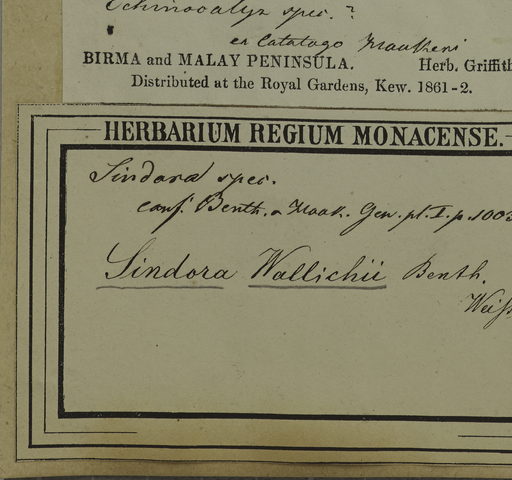 Echinocalyx spec. ?
ex Catalogo Hookeri
BIRMA and MALAY PENINSULA. Herb. Griffith
Distributed at the Royal Gardens, Kew. 1861-2.
HERBARIUM REGIUM MONACENSE.
Sindora spec.
conf. Benth. a Hook. Gen. pl. I. p. 1003
Sindora Wallichii Benth.